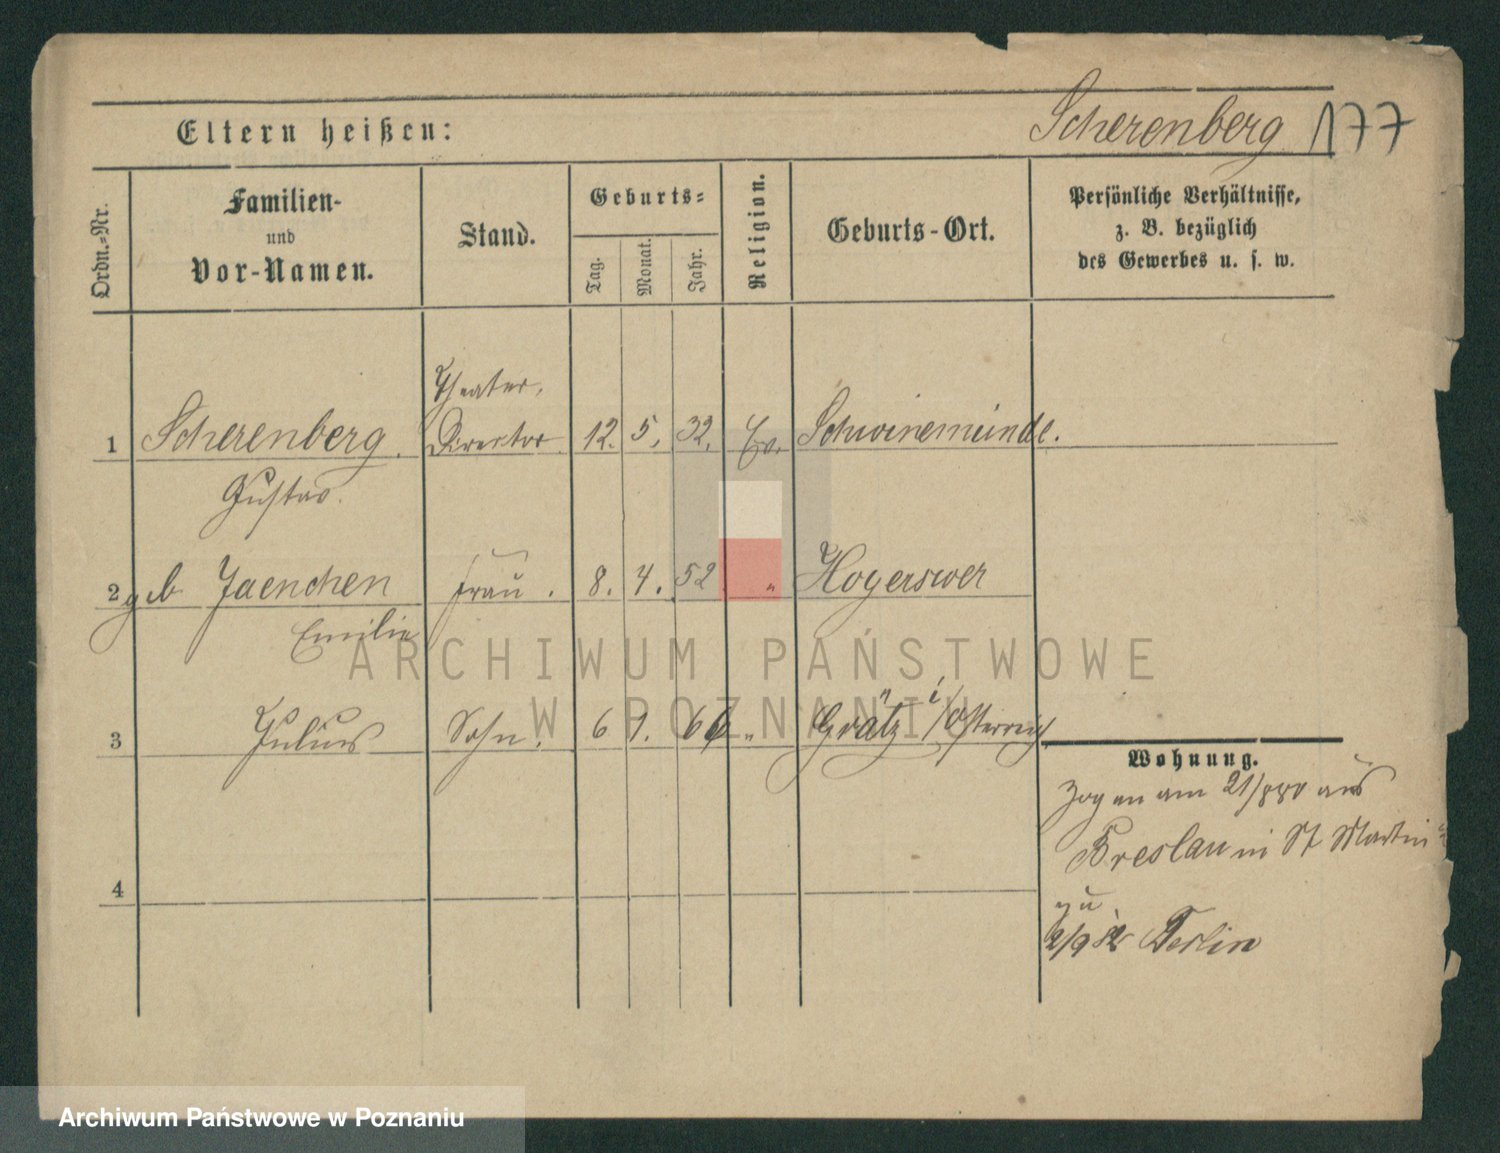 Eltern heißen:
Scherenberg 177
Ordn.-Nr.
Familien-
und
Vor-Namen.
Stand.
Geburts-
Tag.
Monat.
Jahr.
Religion.
Geburts-Ort.
Persönliche Verhältnisse,
z. B. bezüglich
des Gewerbes u. s. w.
Theater-
1 Scherenberg. Director 12. 5. 32. Ev. Schwinemünde.
Gustav.
2 geb Jaenchen Frau. 8. 4. 52 " Hoyerswer
Emilie
3 Julius Sohn. 6 1. 66 " Grätz i/Österreich
Wohnung.
Zogen am 21/880 aus
Breslau in St Martin
4
zu
2/9 82 Berlin
ARCHIWUM PAŃSTWOWE
W POZNANIU
Archiwum Państwowe w Poznaniu